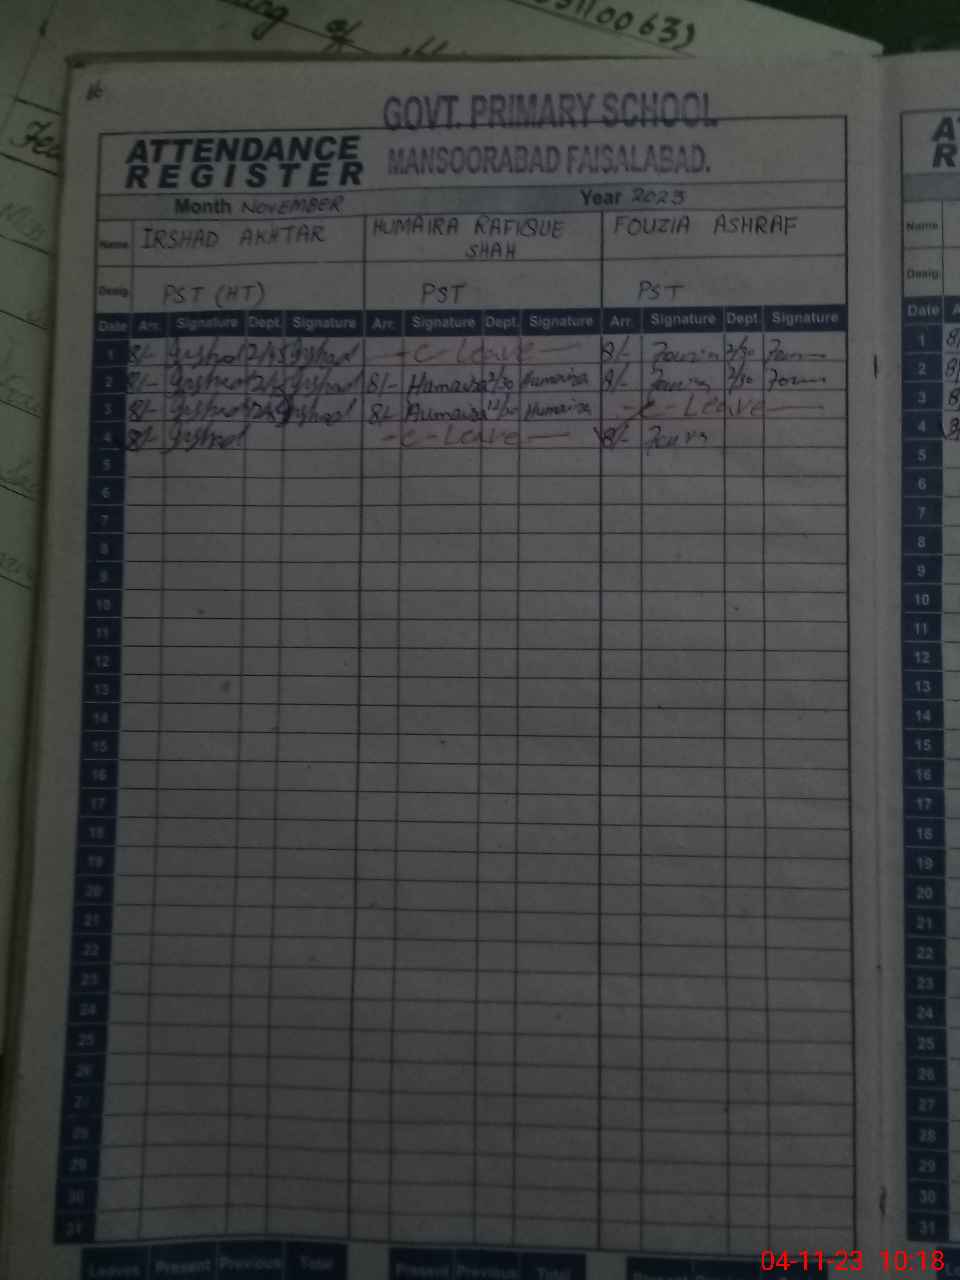 16
GOVT. PRIMARY SCHOOL
MANSOORABAD FAISALABAD.
ATTENDANCE
REGISTER
Month NOVEMBER Year 2023
Name IRSHAD AKHTAR HUMAIRA RAFIQUE SHAH FOUZIA ASHRAF
Desig. PST (HT) PST PST
Date Arr. Signature Dept. Signature Arr. Signature Dept. Signature Arr. Signature Dept. Signature
1 8/- Irshad 2/45 Irshad - C - Leave - 8/- Fouzia 2/30
2 8/- Irshad Irshad 8/- Humaira 2/30 Humaira 8/- Fouzia 2/30
3 8/- Irshad Irshad 8/- Humaira 12/30 Humaira - C - Leave -
4 8/- Irshad - C - Leave - 8/-
5
6
7
8
9
10
11
12
13
14
15
16
17
18
19
20
21
22
23
24
25
26
27
28
29
30
31
Leave Present Previous Total Present Previous Total Present
Name
Desig.
Date
1 8/
2 8/
3 8
4 8
5
6
7
8
9
10
11
12
13
14
15
16
17
18
19
20
21
22
23
24
25
26
27
28
29
30
31
04-11-23 10:18